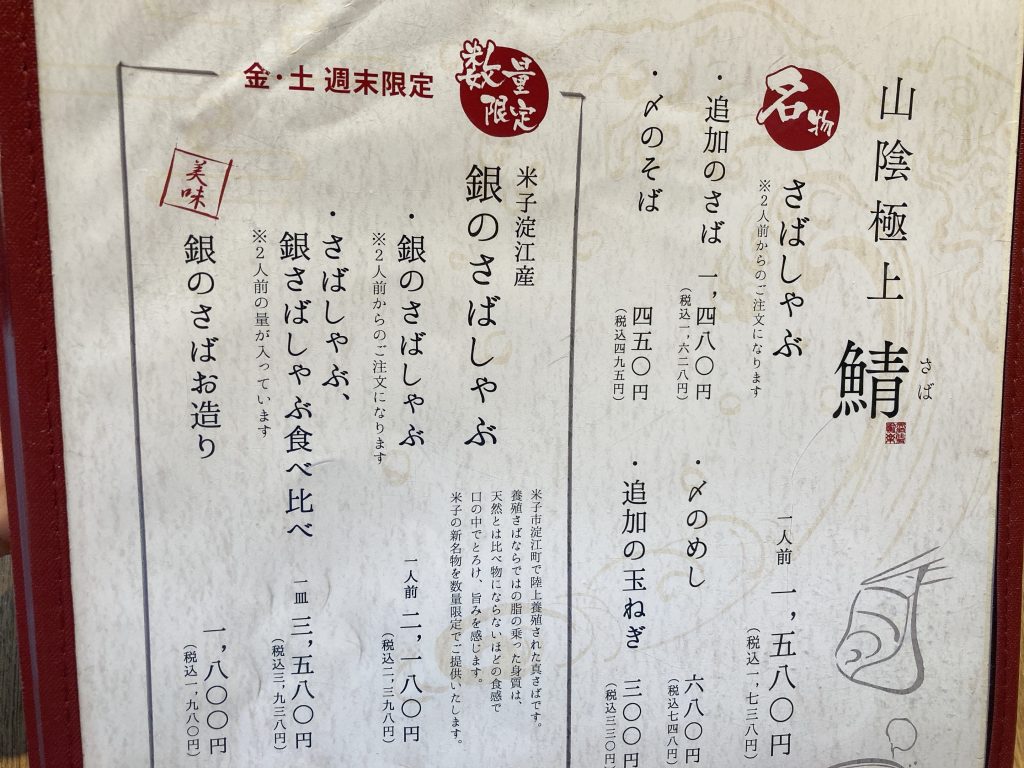 山陰極上 鯖
さば
名物
さばしゃぶ
※2人前からのご注文になります
一人前 一,五八〇円
(税込一,七三八円)
・追加のさば 一,四八〇円
(税込一,六二八円)
・〆のめし 六八〇円
(税込七四八円)
・〆のそば 四五〇円
(税込四九五円)
・追加の玉ねぎ 三〇〇円
(税込三三〇円)
数量限定
金・土 週末限定
米子淀江産
銀のさばしゃぶ
米子市淀江町で陸上養殖された真さばです。
養殖さばならではの脂の乗った身質は、
天然とは比べ物にならないほどの食感で
口の中でとろけ、旨みを感じます。
米子の新名物を数量限定でご提供いたします。
・銀のさばしゃぶ
※2人前からのご注文になります
一人前 二,一八〇円
(税込二,三九八円)
・さばしゃぶ、
銀さばしゃぶ食べ比べ
※2人前の量が入っています
一皿 三,五八〇円
(税込三,九三八円)
美味
銀のさばお造り
一,八〇〇円
(税込一,九八〇円)